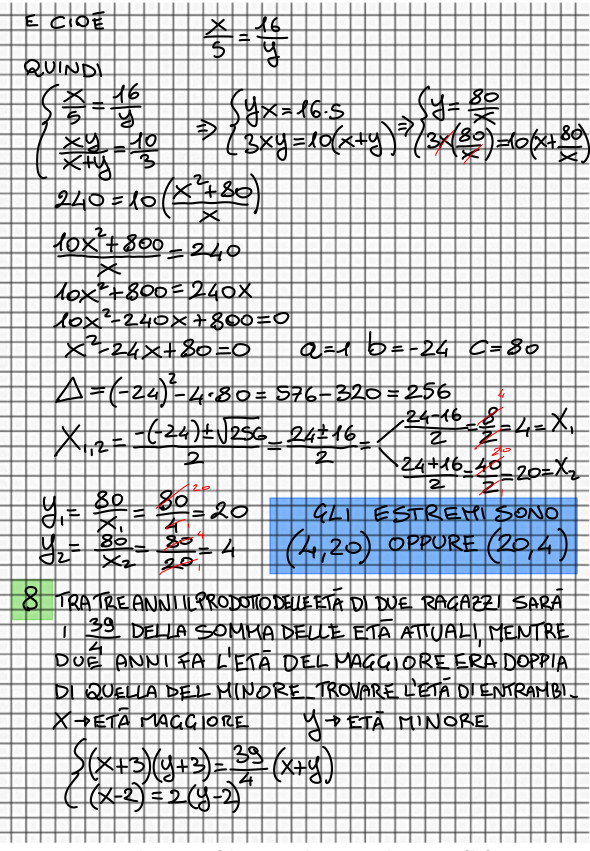 E CIOÈ
x/5 = 16/y
QUINDI
{ x/5 = 16/y ; xy/(x+y) = 10/3 ⇒ { yx = 16·5 ; 3xy = 10(x+y) ⇒ { y = 80/x ; 3x(80/x) = 10(x + 80/x)
240 = 10((x²+80)/x)
(10x²+800)/x = 240
10x²+800 = 240x
10x²-240x+800=0
x²-24x+80=0 a=1 b=-24 c=80
Δ = (-24)²-4·80 = 576-320 = 256
X₁,₂ = (-(-24)±√256)/2 = (24±16)/2 = (24-16)/2 = 8/2 = 4 = X₁
(24+16)/2 = 40/2 = 20 = X₂
y₁ = 80/x₁ = 80/4 = 20
y₂ = 80/x₂ = 80/20 = 4
GLI ESTREMI SONO
(4,20) OPPURE (20,4)
8 TRA TRE ANNI IL PRODOTTO DELLE ETÀ DI DUE RAGAZZI SARÀ
I 39/4 DELLA SOMMA DELLE ETÀ ATTUALI, MENTRE
DUE ANNI FA L'ETÀ DEL MAGGIORE ERA DOPPIA
DI QUELLA DEL MINORE. TROVARE L'ETÀ DI ENTRAMBI.
X → ETÀ MAGGIORE y → ETÀ MINORE
{ (x+3)(y+3) = 39/4 (x+y)
(x-2) = 2(y-2)